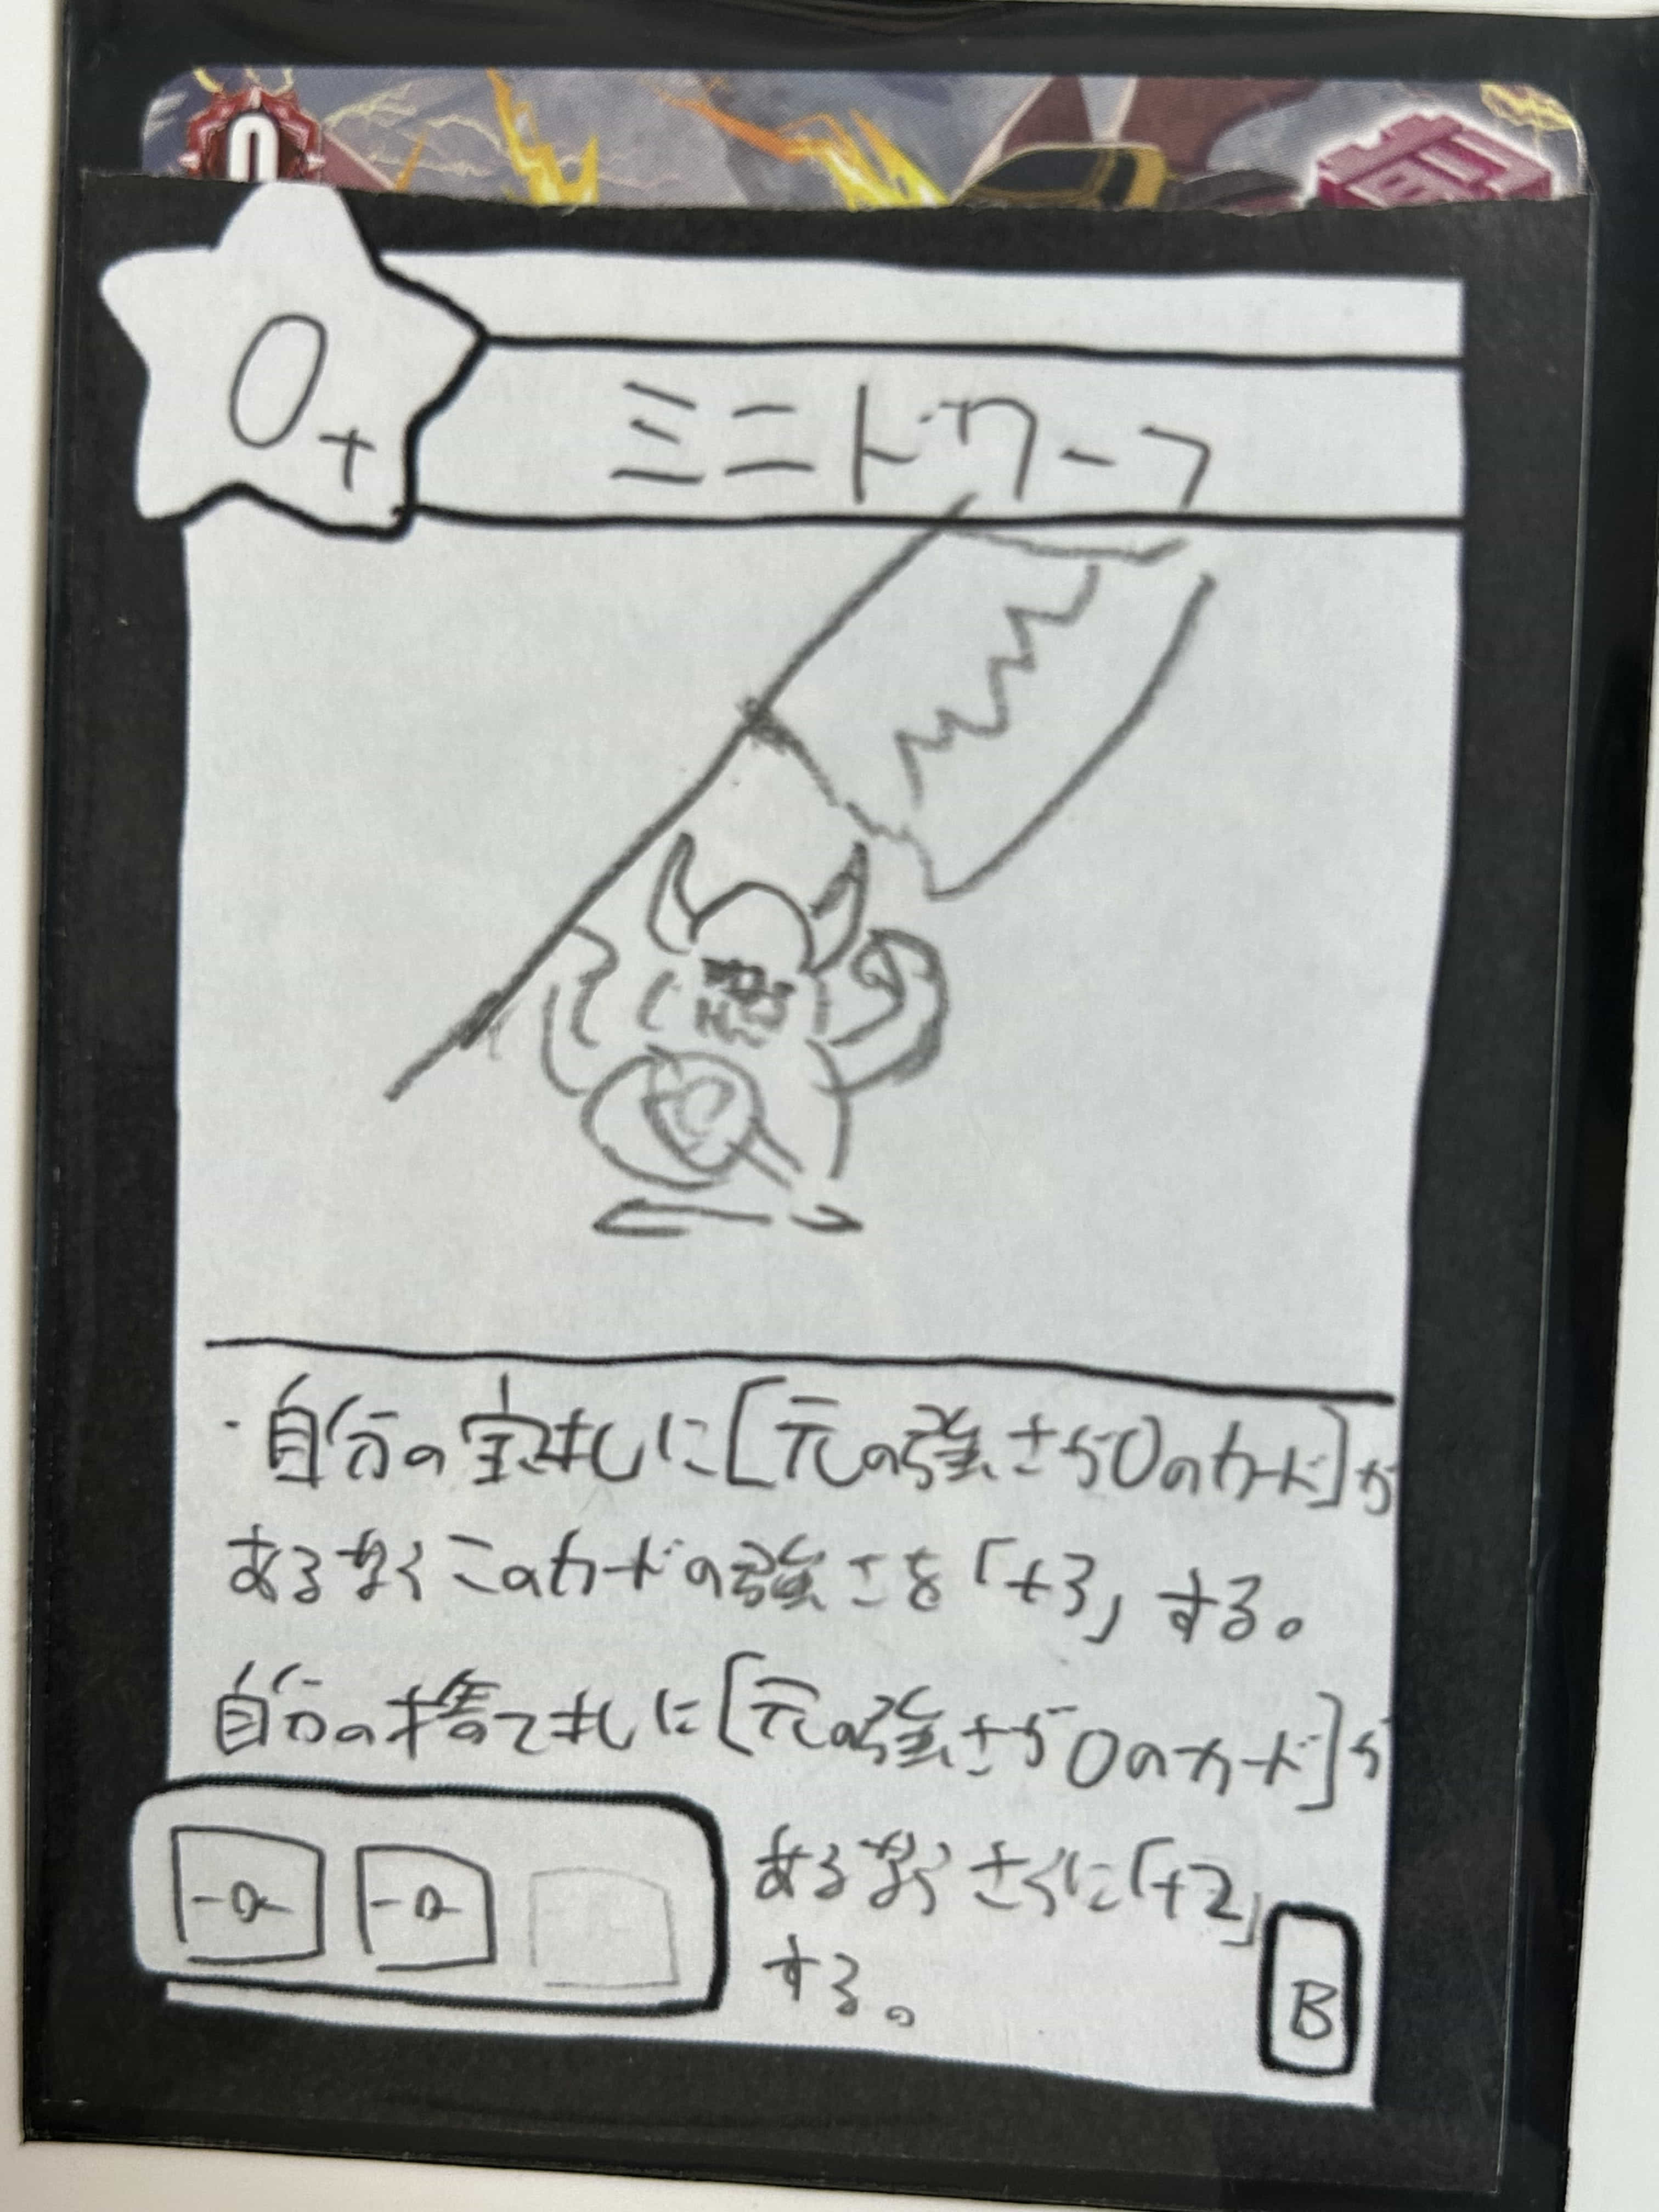 0
0+
ミニドワーフ
・自分の宝札に[元の強さが0のカード]が
あるなら このカードの強さを「+3」する。
自分の捨て札に[元の強さが0のカード]が
あるなら さらに「+2」
する。
B